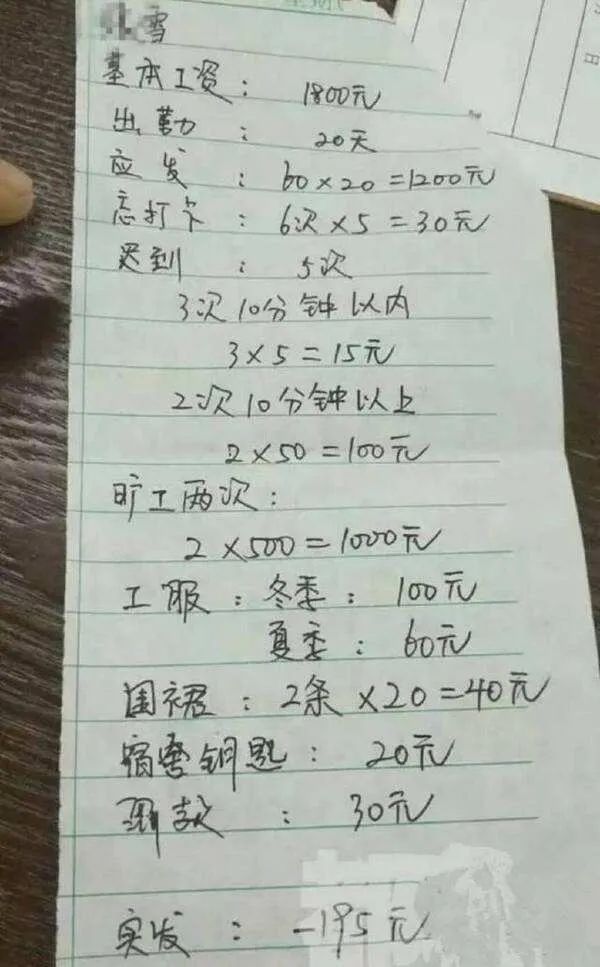 雪
基本工资： 1800元
出勤： 20天
应发： 60×20=1200元
忘打卡： 6次×5=30元
迟到： 5次
3次10分钟以内
3×5=15元
2次10分钟以上
2×50=100元
旷工两次：
2×500=1000元
工服：冬季： 100元
夏季： 60元
围裙： 2条×20=40元
宿舍钥匙： 20元
罚款： 30元
实发： -195元